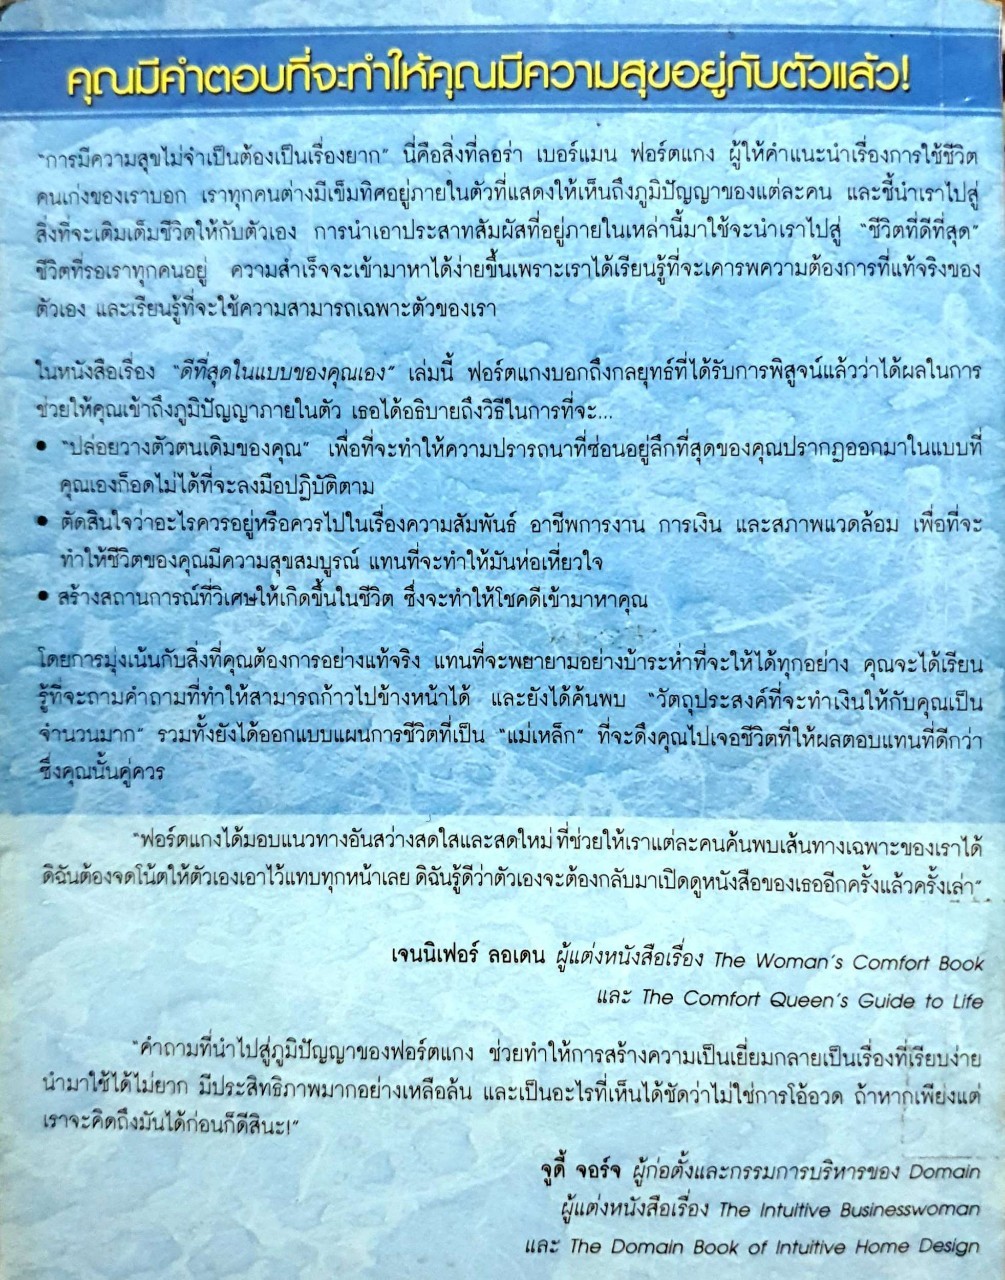 คุณมีคำตอบที่จะทำให้คุณมีความสุขอยู่กับตัวแล้ว!
"การมีความสุขไม่จำเป็นต้องเป็นเรื่องยาก" นี่คือสิ่งที่ลอร่า เบอร์แมน ฟอร์ตแกง ผู้ให้คำแนะนำเรื่องการใช้ชีวิต
คนเก่งของเราบอก เราทุกคนต่างมีเข็มทิศอยู่ภายในตัวที่แสดงให้เห็นถึงภูมิปัญญาของแต่ละคน และชี้นำเราไปสู่
สิ่งที่จะเติมเต็มชีวิตให้กับตัวเอง การนำเอาประสาทสัมผัสที่อยู่ภายในเหล่านี้มาใช้จะนำเราไปสู่ "ชีวิตที่ดีที่สุด"
ชีวิตที่รอเราทุกคนอยู่ ความสำเร็จจะเข้ามาหาได้ง่ายขึ้นเพราะเราได้เรียนรู้ที่จะเคารพความต้องการที่แท้จริงของ
ตัวเอง และเรียนรู้ที่จะใช้ความสามารถเฉพาะตัวของเรา
ในหนังสือเรื่อง "ดีที่สุดในแบบของคุณเอง" เล่มนี้ ฟอร์ตแกงบอกถึงกลยุทธ์ที่ได้รับการพิสูจน์แล้วว่าได้ผลในการ
ช่วยให้คุณเข้าถึงภูมิปัญญาภายในตัว เธอได้อธิบายถึงวิธีในการที่จะ...
• "ปล่อยวางตัวตนเดิมของคุณ" เพื่อที่จะทำให้ความปรารถนาที่ซ่อนอยู่ลึกที่สุดของคุณปรากฏออกมาในแบบที่
คุณเองก็อดไม่ได้ที่จะลงมือปฏิบัติตาม
• ตัดสินใจว่าอะไรควรอยู่หรือควรไปในเรื่องความสัมพันธ์ อาชีพการงาน การเงิน และสภาพแวดล้อม เพื่อที่จะ
ทำให้ชีวิตของคุณมีความสุขสมบูรณ์ แทนที่จะทำให้มันห่อเหี่ยวใจ
• สร้างสถานการณ์ที่วิเศษให้เกิดขึ้นในชีวิต ซึ่งจะทำให้โชคดีเข้ามาหาคุณ
โดยการมุ่งเน้นกับสิ่งที่คุณต้องการอย่างแท้จริง แทนที่จะพยายามอย่างบ้าระห่ำที่จะให้ได้ทุกอย่าง คุณจะได้เรียน
รู้ที่จะถามคำถามที่ทำให้สามารถก้าวไปข้างหน้าได้ และยังได้ค้นพบ "วัตถุประสงค์ที่จะทำเงินให้กับคุณเป็น
จำนวนมาก" รวมทั้งยังได้ออกแบบแผนการชีวิตที่เป็น "แม่เหล็ก" ที่จะดึงคุณไปเจอชีวิตที่ให้ผลตอบแทนที่ดีกว่า
ซึ่งคุณนั้นคู่ควร
"ฟอร์ตแกงได้มอบแนวทางอันสว่างสดใสและสดใหม่ ที่ช่วยให้เราแต่ละคนค้นพบเส้นทางเฉพาะของเราได้
ดิฉันต้องจดโน้ตให้ตัวเองเอาไว้แทบทุกหน้าเลย ดิฉันรู้ดีว่าตัวเองจะต้องกลับมาเปิดดูหนังสือของเธออีกครั้งแล้วครั้งเล่า"
เจนนิเฟอร์ ลอเดน ผู้แต่งหนังสือเรื่อง The Woman's Comfort Book
และ The Comfort Queen's Guide to Life
"คำถามที่นำไปสู่ภูมิปัญญาของฟอร์ตแกง ช่วยทำให้การสร้างความเป็นเยี่ยมกลายเป็นเรื่องที่เรียบง่าย
นำมาใช้ได้ไม่ยาก มีประสิทธิภาพมากอย่างเหลือล้น และเป็นอะไรที่เห็นได้ชัดว่าไม่ใช่การโอ้อวด ถ้าหากเพียงแต่
เราจะคิดถึงมันได้ก่อนก็ดีสินะ!"
จูดี้ จอร์จ ผู้ก่อตั้งและกรรมการบริหารของ Domain
ผู้แต่งหนังสือเรื่อง The Intuitive Businesswoman
และ The Domain Book of Intuitive Home Design